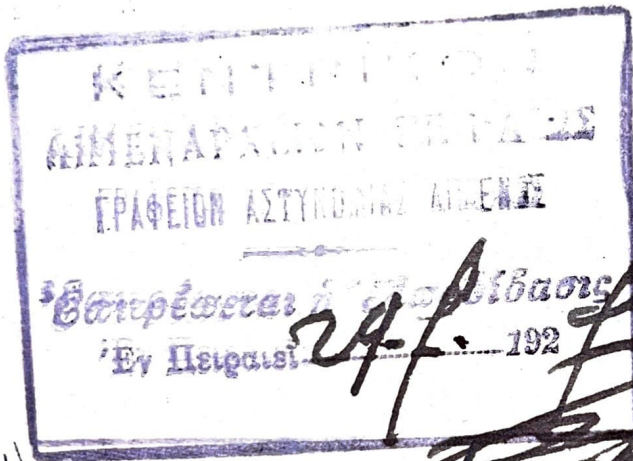 ΚΕΝΤΡΙΚΟΝ
ΛΙΜΕΝΑΡΧΕΙΟΝ ΠΕΙΡΑΙΩΣ
ΓΡΑΦΕΙΟΝ ΑΣΤΥΝΟΜΙΑΣ ΛΙΜΕΝΟΣ
Ἐπιτρέπεται ἡ
Ἐν Πειραιεῖ 24- 192